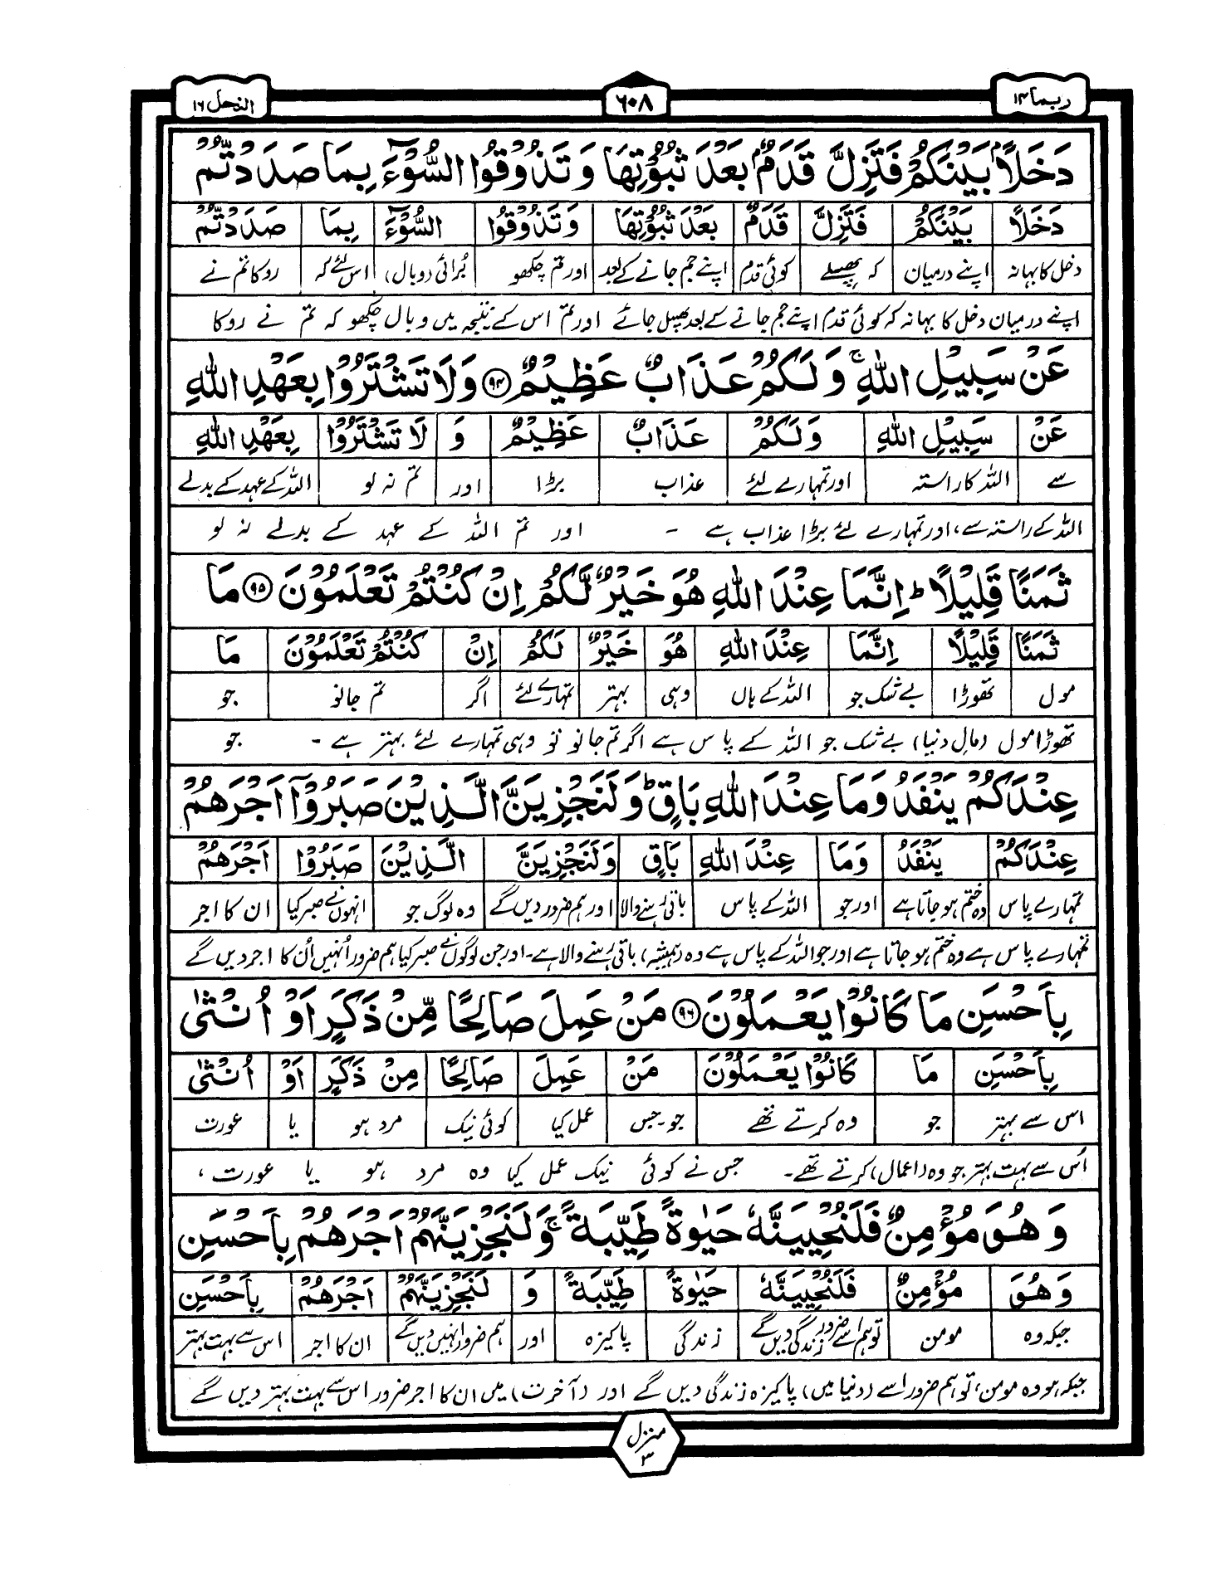 ربما ۱۴
۶۰۸
النحل ۱۶
دَخَلًاۢ بَيْنَكُمْ فَتَزِلَّ قَدَمٌۢ بَعْدَ ثُبُوْتِهَا وَتَذُوْقُوا السُّوْٓءَ بِمَا صَدَدْتُّمْ
دَخَلًا بَيْنَكُمْ فَتَزِلَّ قَدَمٌ بَعْدَ ثُبُوْتِهَا وَتَذُوْقُوا السُّوْٓءَ بِمَا صَدَدْتُّمْ
دخل کا بہانہ اپنے درمیان کہ پھسلے کوئی قدم اپنے جم جانے کے بعد اور تم چکھو بُرائی (وبال) اس لئے کہ روکا تم نے
اپنے درمیان دخل کا بہانہ کہ کوئی قدم اپنے جم جانے کے بعد پھسل جائے اور تم اس کے نتیجہ میں وبال چکھو کہ تم نے روکا
عَنْ سَبِيْلِ اللهِ ۚ وَلَكُمْ عَذَابٌ عَظِيْمٌ ﴿۹۴﴾ وَلَا تَشْتَرُوْا بِعَهْدِ اللهِ
عَنْ سَبِيْلِ اللهِ وَلَكُمْ عَذَابٌ عَظِيْمٌ وَ لَا تَشْتَرُوْا بِعَهْدِ اللهِ
سے اللہ کا راستہ اور تمہارے لئے عذاب بڑا اور تم نہ لو اللہ کے عہد کے بدلے
اللہ کے راستہ سے، اور تمہارے لئے بڑا عذاب ہے ۔ اور تم اللہ کے عہد کے بدلے نہ لو
ثَمَنًا قَلِيْلًا ؕ اِنَّمَا عِنْدَ اللهِ هُوَ خَيْرٌ لَّكُمْ اِنْ كُنْتُمْ تَعْلَمُوْنَ ﴿۹۵﴾ مَا
ثَمَنًا قَلِيْلًا اِنَّمَا عِنْدَ اللهِ هُوَ خَيْرٌ لَكُمْ اِنْ كُنْتُمْ تَعْلَمُوْنَ مَا
مول تھوڑا بے شک جو اللہ کے ہاں وہی بہتر تمہارے لئے اگر تم جانو جو
تھوڑا مول (مالِ دنیا) بے شک جو اللہ کے پاس ہے اگر تم جانو تو وہی تمہارے لئے بہتر ہے ۔ جو
عِنْدَكُمْ يَنْفَدُ وَمَا عِنْدَ اللهِ بَاقٍ ؕ وَلَنَجْزِيَنَّ الَّذِيْنَ صَبَرُوْٓا اَجْرَهُمْ
عِنْدَكُمْ يَنْفَدُ وَمَا عِنْدَ اللهِ بَاقٍ وَلَنَجْزِيَنَّ الَّذِيْنَ صَبَرُوْا اَجْرَهُمْ
تمہارے پاس وہ ختم ہو جاتا ہے اور جو اللہ کے پاس باقی رہنے والا اور ہم ضرور دیں گے وہ لوگ جو انہوں نے صبر کیا ان کا اجر
تمہارے پاس ہے وہ ختم ہو جاتا ہے اور جو اللہ کے پاس ہے وہ (ہمیشہ) باقی رہنے والا ہے۔ اور جن لوگوں نے صبر کیا ہم ضرور اُنہیں اُن کا اجر دیں گے
بِاَحْسَنِ مَا كَانُوْا يَعْمَلُوْنَ ﴿۹۶﴾ مَنْ عَمِلَ صَالِحًا مِّنْ ذَكَرٍ اَوْ اُنْثٰى
بِاَحْسَنِ مَا كَانُوْا يَعْمَلُوْنَ مَنْ عَمِلَ صَالِحًا مِنْ ذَكَرٍ اَوْ اُنْثٰى
اس سے بہتر جو وہ کرتے تھے جو۔جس عمل کیا کوئی نیک مرد ہو یا عورت
اُس سے بہت بہتر جو وہ (اعمال) کرتے تھے۔ جس نے کوئی نیک عمل کیا وہ مرد ہو یا عورت ،
وَهُوَ مُؤْمِنٌ فَلَنُحْيِيَنَّهٗ حَيٰوةً طَيِّبَةً ۚ وَلَنَجْزِيَنَّهُمْ اَجْرَهُمْ بِاَحْسَنِ
وَهُوَ مُؤْمِنٌ فَلَنُحْيِيَنَّهٗ حَيٰوةً طَيِّبَةً وَ لَنَجْزِيَنَّهُمْ اَجْرَهُمْ بِاَحْسَنِ
جبکہ وہ مومن تو ہم اسے ضرور زندگی دیں گے زندگی پاکیزہ اور ہم ضرور انہیں دیں گے ان کا اجر اس سے بہت بہتر
جبکہ ہو وہ مومن، تو ہم ضرور اسے (دنیا میں) پاکیزہ زندگی دیں گے اور (آخرت) میں ان کا اجر ضرور اس سے بہت بہتر دیں گے
منزل ۳